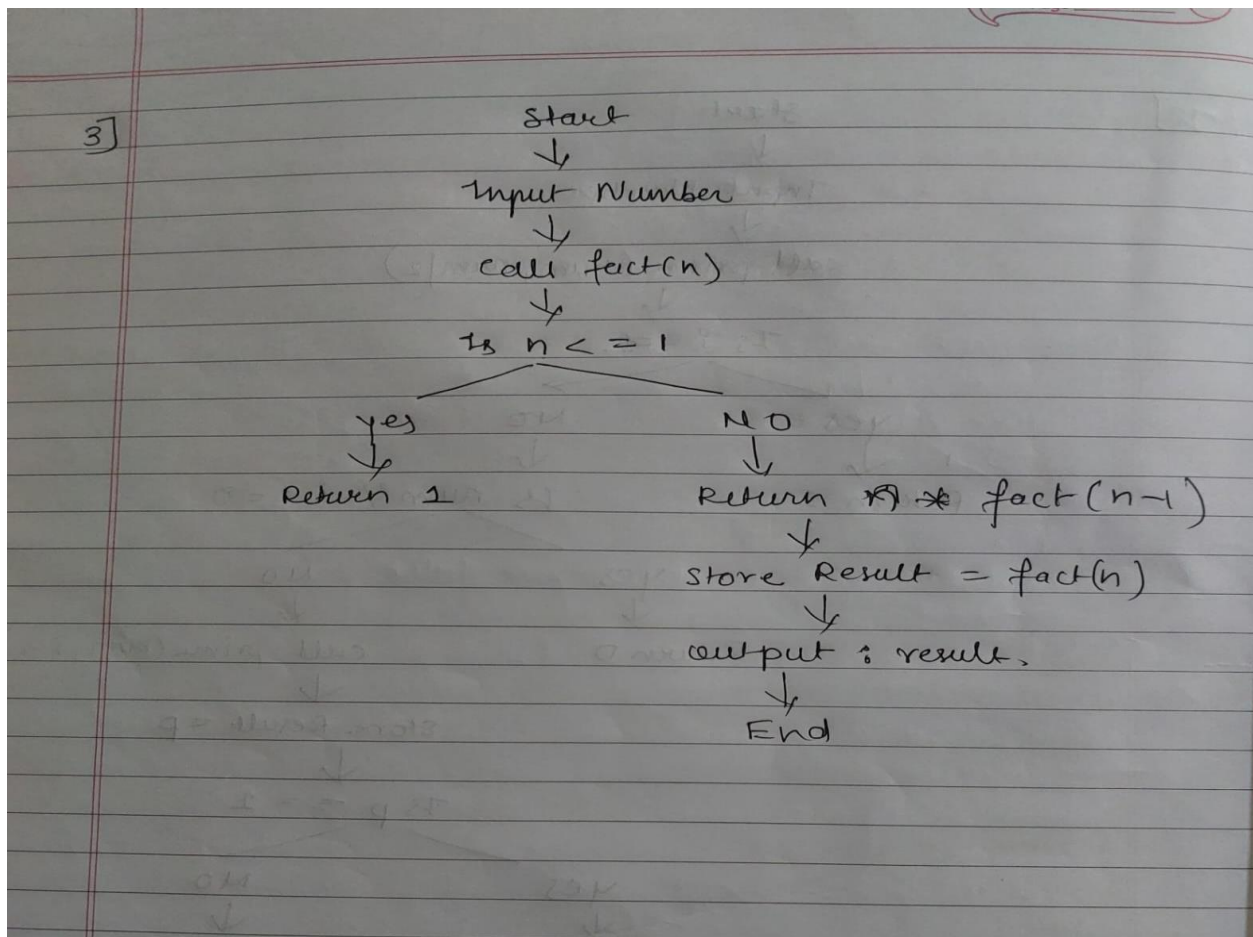 3]
Start
Input Number
call fact(n)
Is n < = 1
yes NO
Return 1 Return n * fact(n-1)
Store Result = fact(n)
output : result.
End